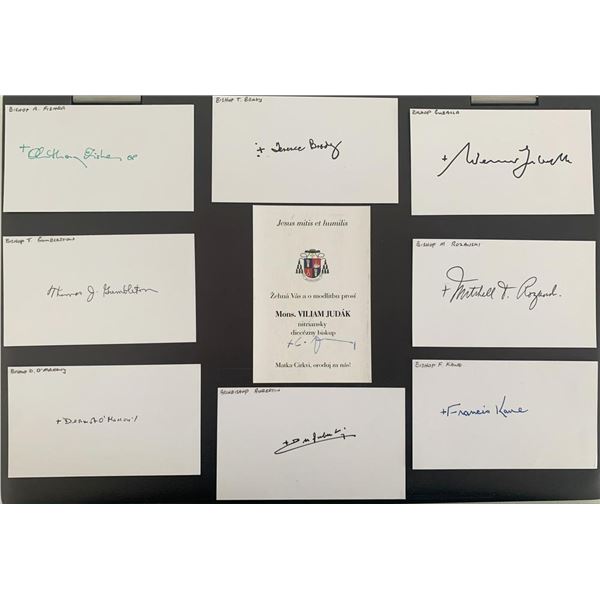 BISHOP A. FISHER
+ Anthony Fisher OP
BISHOP T. BRADY
+ Terence Brady
BISHOP GUBALLA
+ Werner Guballa
BISHOP T. GUMBLETON
+ Thomas J. Gumbleton
Jesus mitis et humilis
Žehná Vás a o modlitbu prosí
Mons. VILIAM JUDÁK
nitriansky
diecézny biskup
Matka Cirkvi, oroduj za nás!
BISHOP M. ROZANSKI
+ Mitchell T. Rozanski
BISHOP D. O'MAHONY
+ Dermot O'Mahony
BISHOP F. KANE
+ Francis Kane